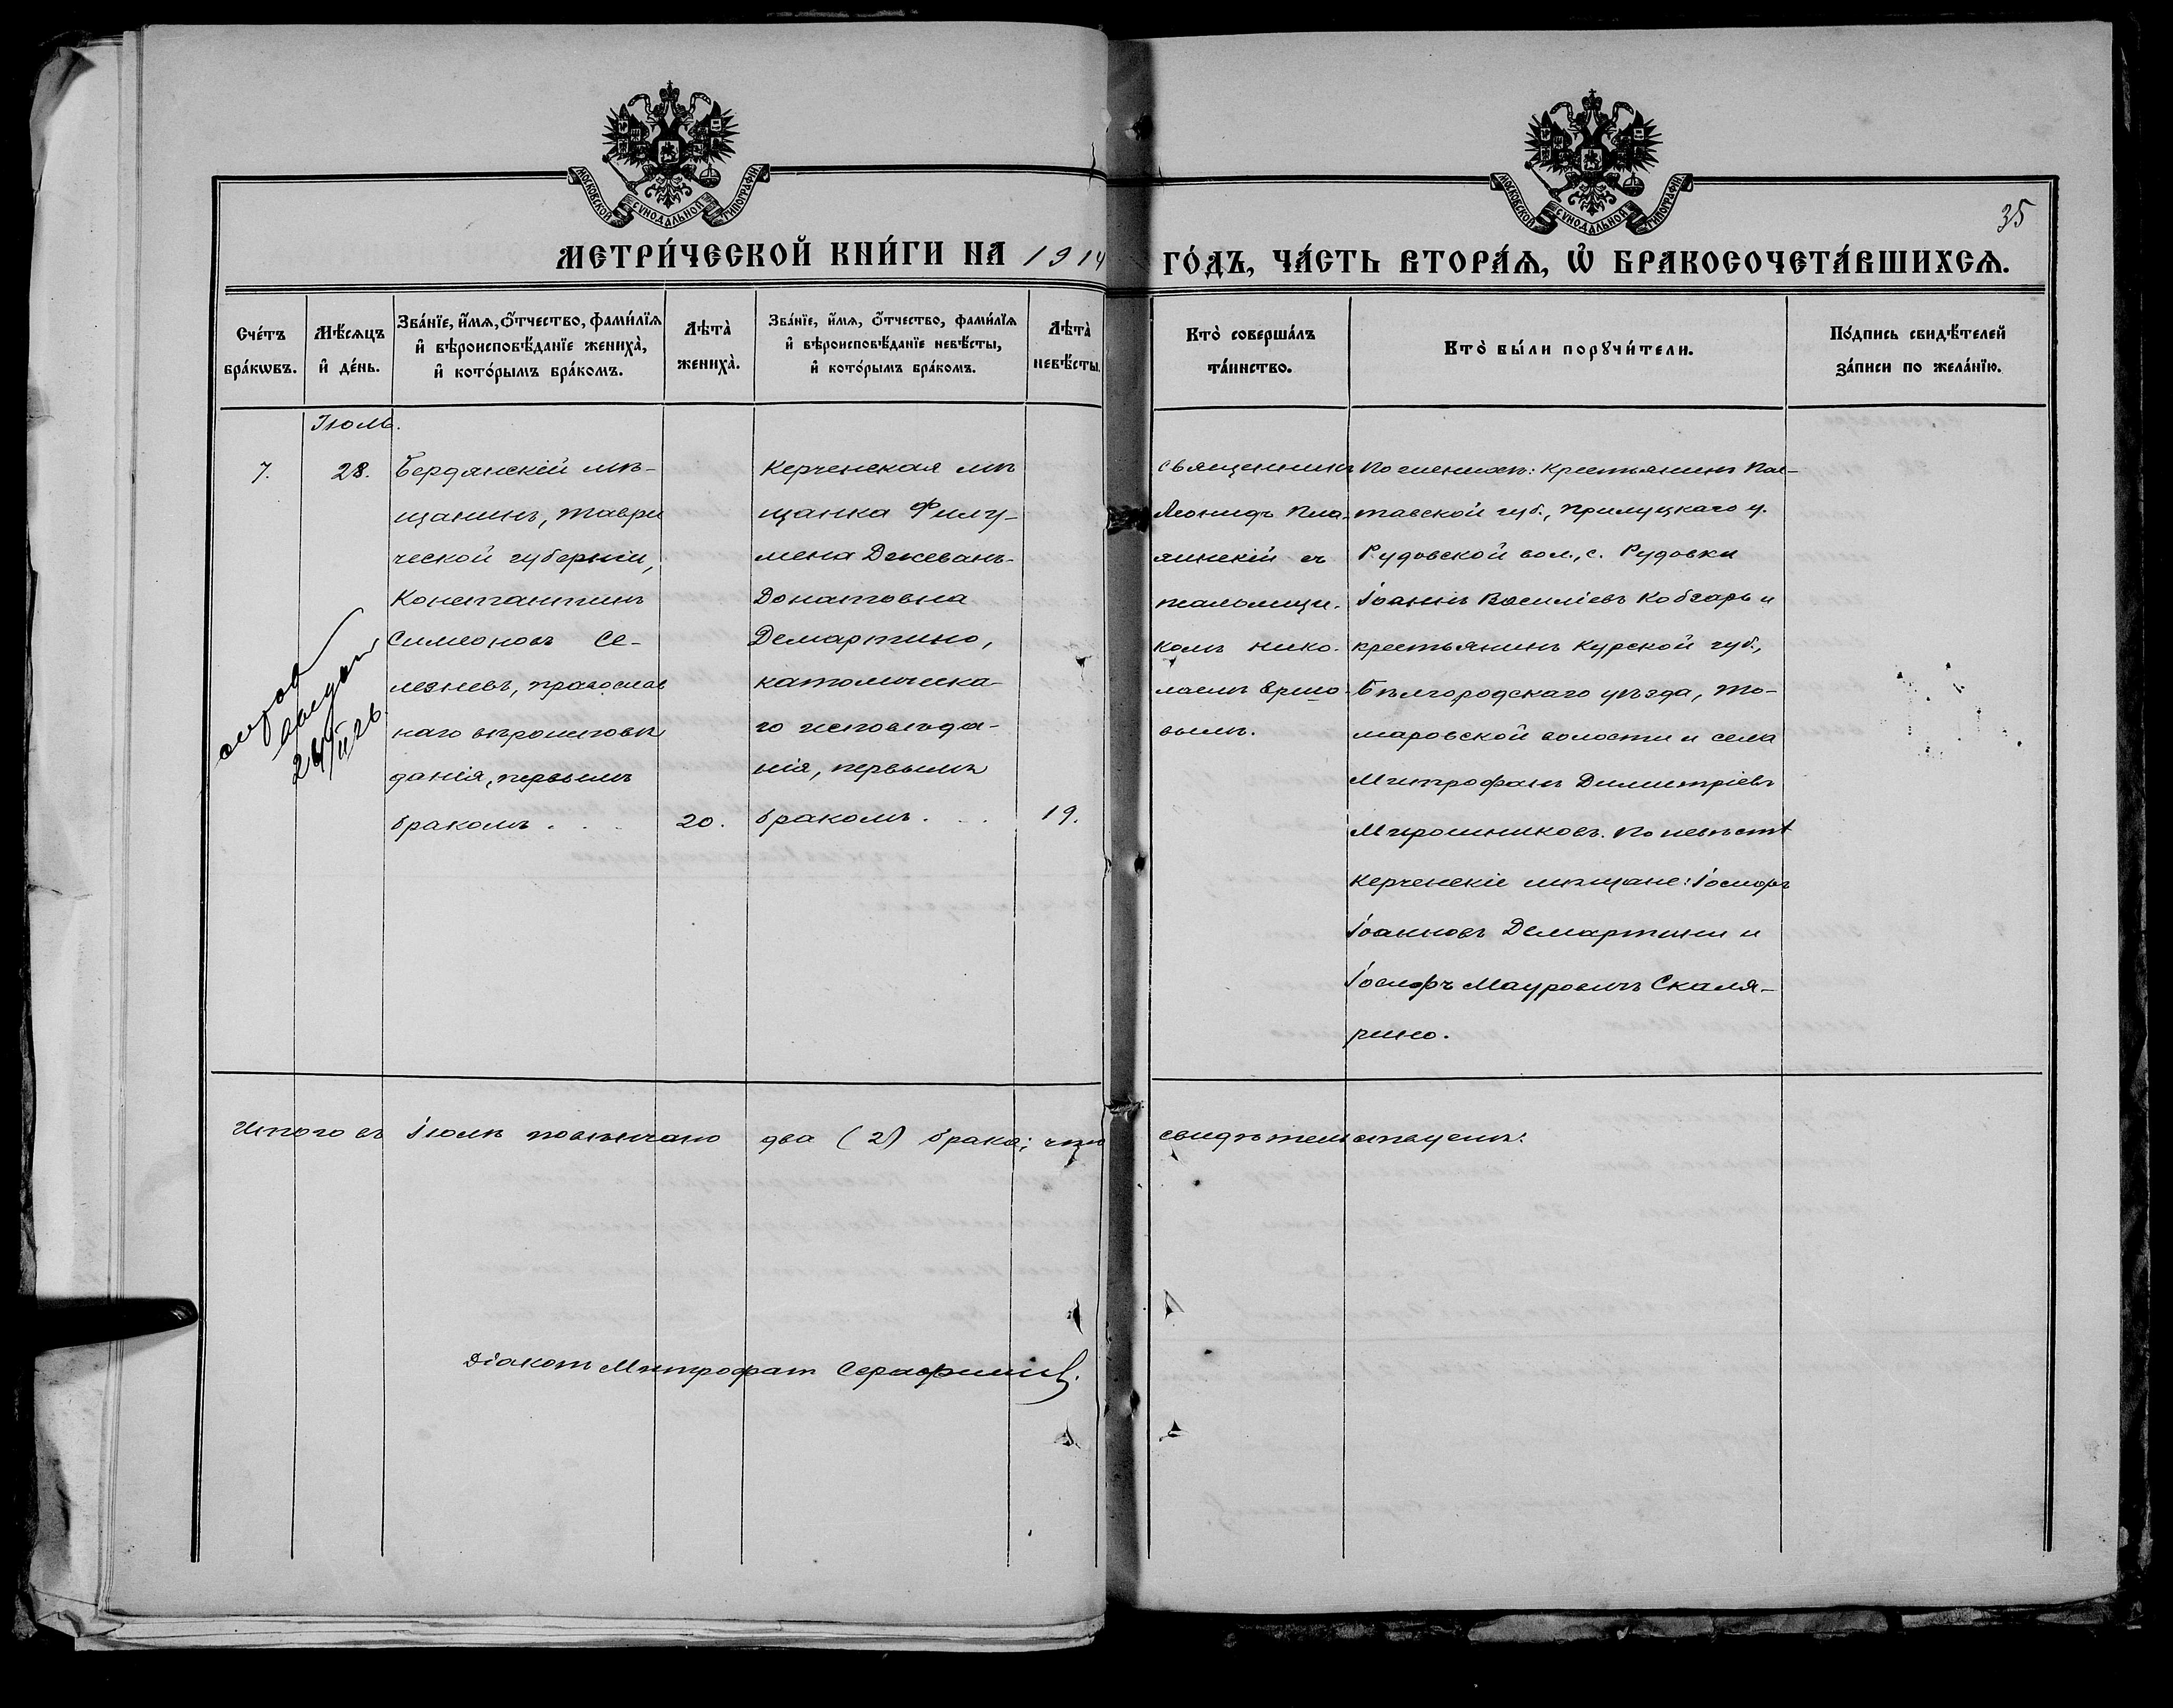 МОСКОВСКОЙ СѴНОДАЛЬНОЙ ТИПОГРАФІИ
МОСКОВСКОЙ СѴНОДАЛЬНОЙ ТИПОГРАФІИ
35
МЕТРИ́ЧЕСКОЙ КНИ́ГИ НА 1914
ГО́ДЪ, ЧА́СТЬ ВТОРА́Ѧ, Ѡ҆ БРАКОСОЧЕТА́ВШИХСѦ.
Сче́тъ
бра́кѡвъ.
Мѣ́сѧцъ
и҆ де́нь.
Зва́нїе, и҆́мѧ, ѻ҆́тчество, фами́лїѧ
и҆ вѣроисповѣ́данїе жениха̀,
и҆ кото́рымъ бра́комъ.
Лѣта̀
жениха̀.
Зва́нїе, и҆́мѧ, ѻ҆́тчество, фами́лїѧ
и҆ вѣроисповѣ́данїе невѣ́сты,
и҆ кото́рымъ бра́комъ.
Лѣта̀
невѣ́сты.
Кто̀ соверша́лъ
та́инство.
Кто̀ бы́ли порꙋчи́тели.
По́дпись свидѣ́телей
за́писи по жела́нїю.
Іюль.
7.
28.
Бердянскій мѣ-
щанинъ, Таври
ческой губерніи,
Константинъ
Симеоновъ Се-
лезневъ, православ
наго вѣроисповѣ
данія, первымъ
бракомъ . . .
20.
Керченская мѣ
щанка Филу-
мена Джеванъ-
Донатовна
Демартино,
католическа-
го исповѣда-
нія, первымъ
бракомъ. . .
19.
Священникъ
Леонидъ
съ
псаломщи-
комъ Нико-
лаемъ
вымъ.
По женихѣ: крестьянинъ Пол-
тавской губ., Прилуцкаго у.
Рудовской вол., с. Рудовки
Іоаннъ Василіевъ Кобзарь и
крестьянинъ Курской губ.,
Бѣлгородскаго уѣзда, То-
маровской волости и села
Митрофанъ Димитріевъ
Мирошниковъ. По невѣстѣ
Керченскіе мѣщане: Іосифъ
Іоанновъ Демартини и
Іосифъ Мауровичъ Скаля-
рино.
выдан
26/II 26
Итого въ Іюлѣ повѣнчано два (2) брака; что свидѣтельствуемъ:
Діаконъ Митрофанъ Серафимовъ.